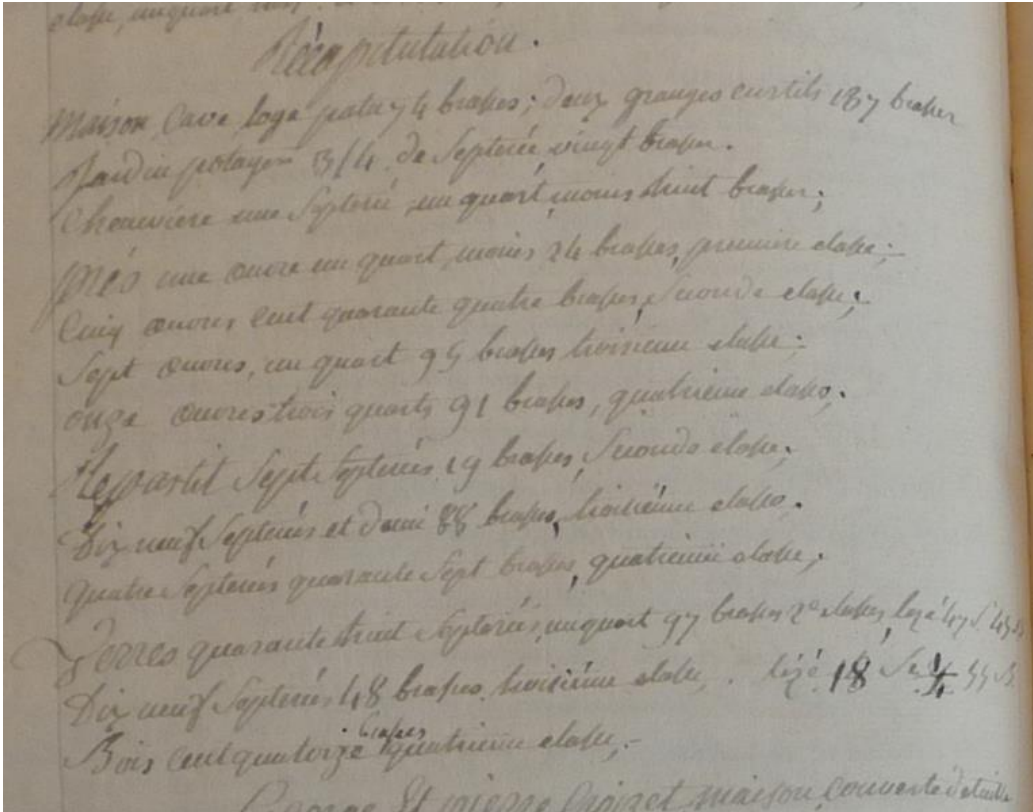 classe, un quart
Récapitulation.
Maison cave loge patu 74 brasses; deux granges curtils 187 brasses
Jardin potager 3/4 de septerée vingt brasses.
Cheneviere une septeré un quart moins huit brasses;
Prés une œuvre un quart, moins 24 brasses, premiere classe;
Cinq œuvres cent quarante quatre brasses, seconde classe;
Sept œuvres, un quart 95 brasses troisieme classe;
onze œuvres trois quarts 91 brasses, quatrieme classe.
Repastit sept septerés 19 brasses, seconde classe;
Dix neuf septerés et demi 88 brasses, troisiéme classe.
quatre septerés quarante sept brasses, quatrieme classe;
Terres quarante huit septerés, un quart 97 brasses 2e classe, lezé 47 S. 45
Dix neuf septerés 48 brasses troisiéme classe. lezé 18 Se 1/4 55 B.
Bois cent quatorze brasses quatrieme classe,
George Et pierre maison couverte de tuille